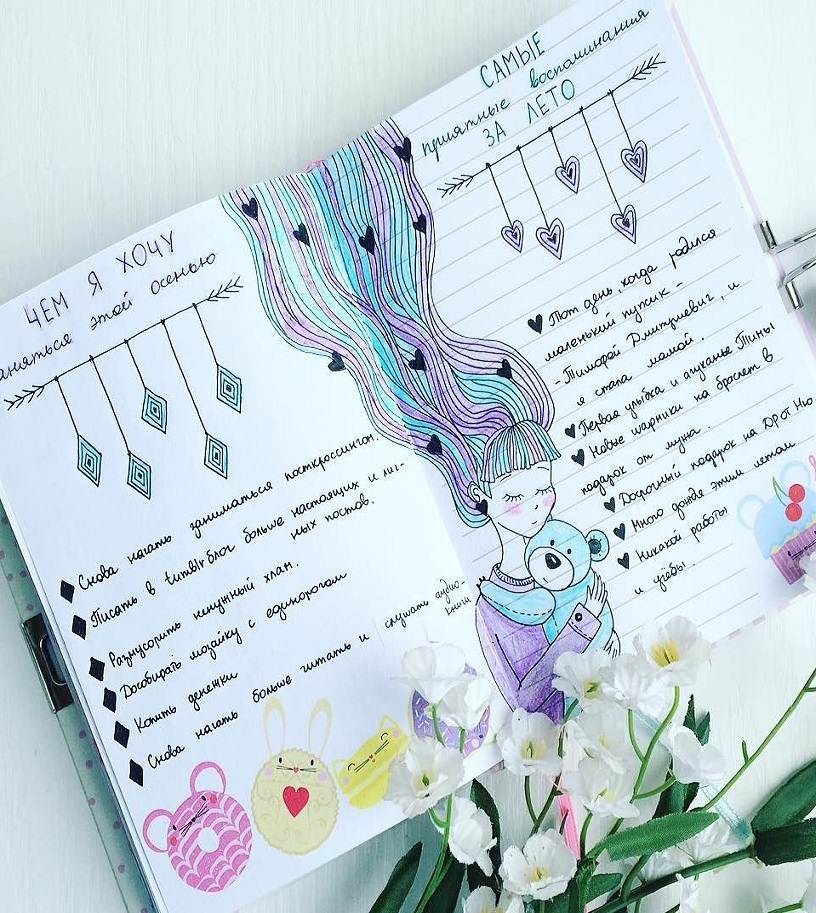 ЧЕМ Я ХОЧУ
заняться этой осенью
Снова начать заниматься посткроссингом.
Писать в tumblr блог больше настоящих и лич-
ных постов.
Размусорить ненужный хлам.
Дособирать мозайку с единорогом
Копить денежки
Снова начать больше читать и слушать аудио-
книги
САМЫЕ
приятные воспоминания
ЗА ЛЕТО
Тот день, когда родился
маленький пупсик -
- Тимофей Дмитриевич, и
я стала мамой.
Первая улыбка и агуканье Тимы
Новые шарники на браслет в
подарок от мужа.
Досрочный подарок на Дрот
Много дождя этим летом
Никакой работы
и учёбы.